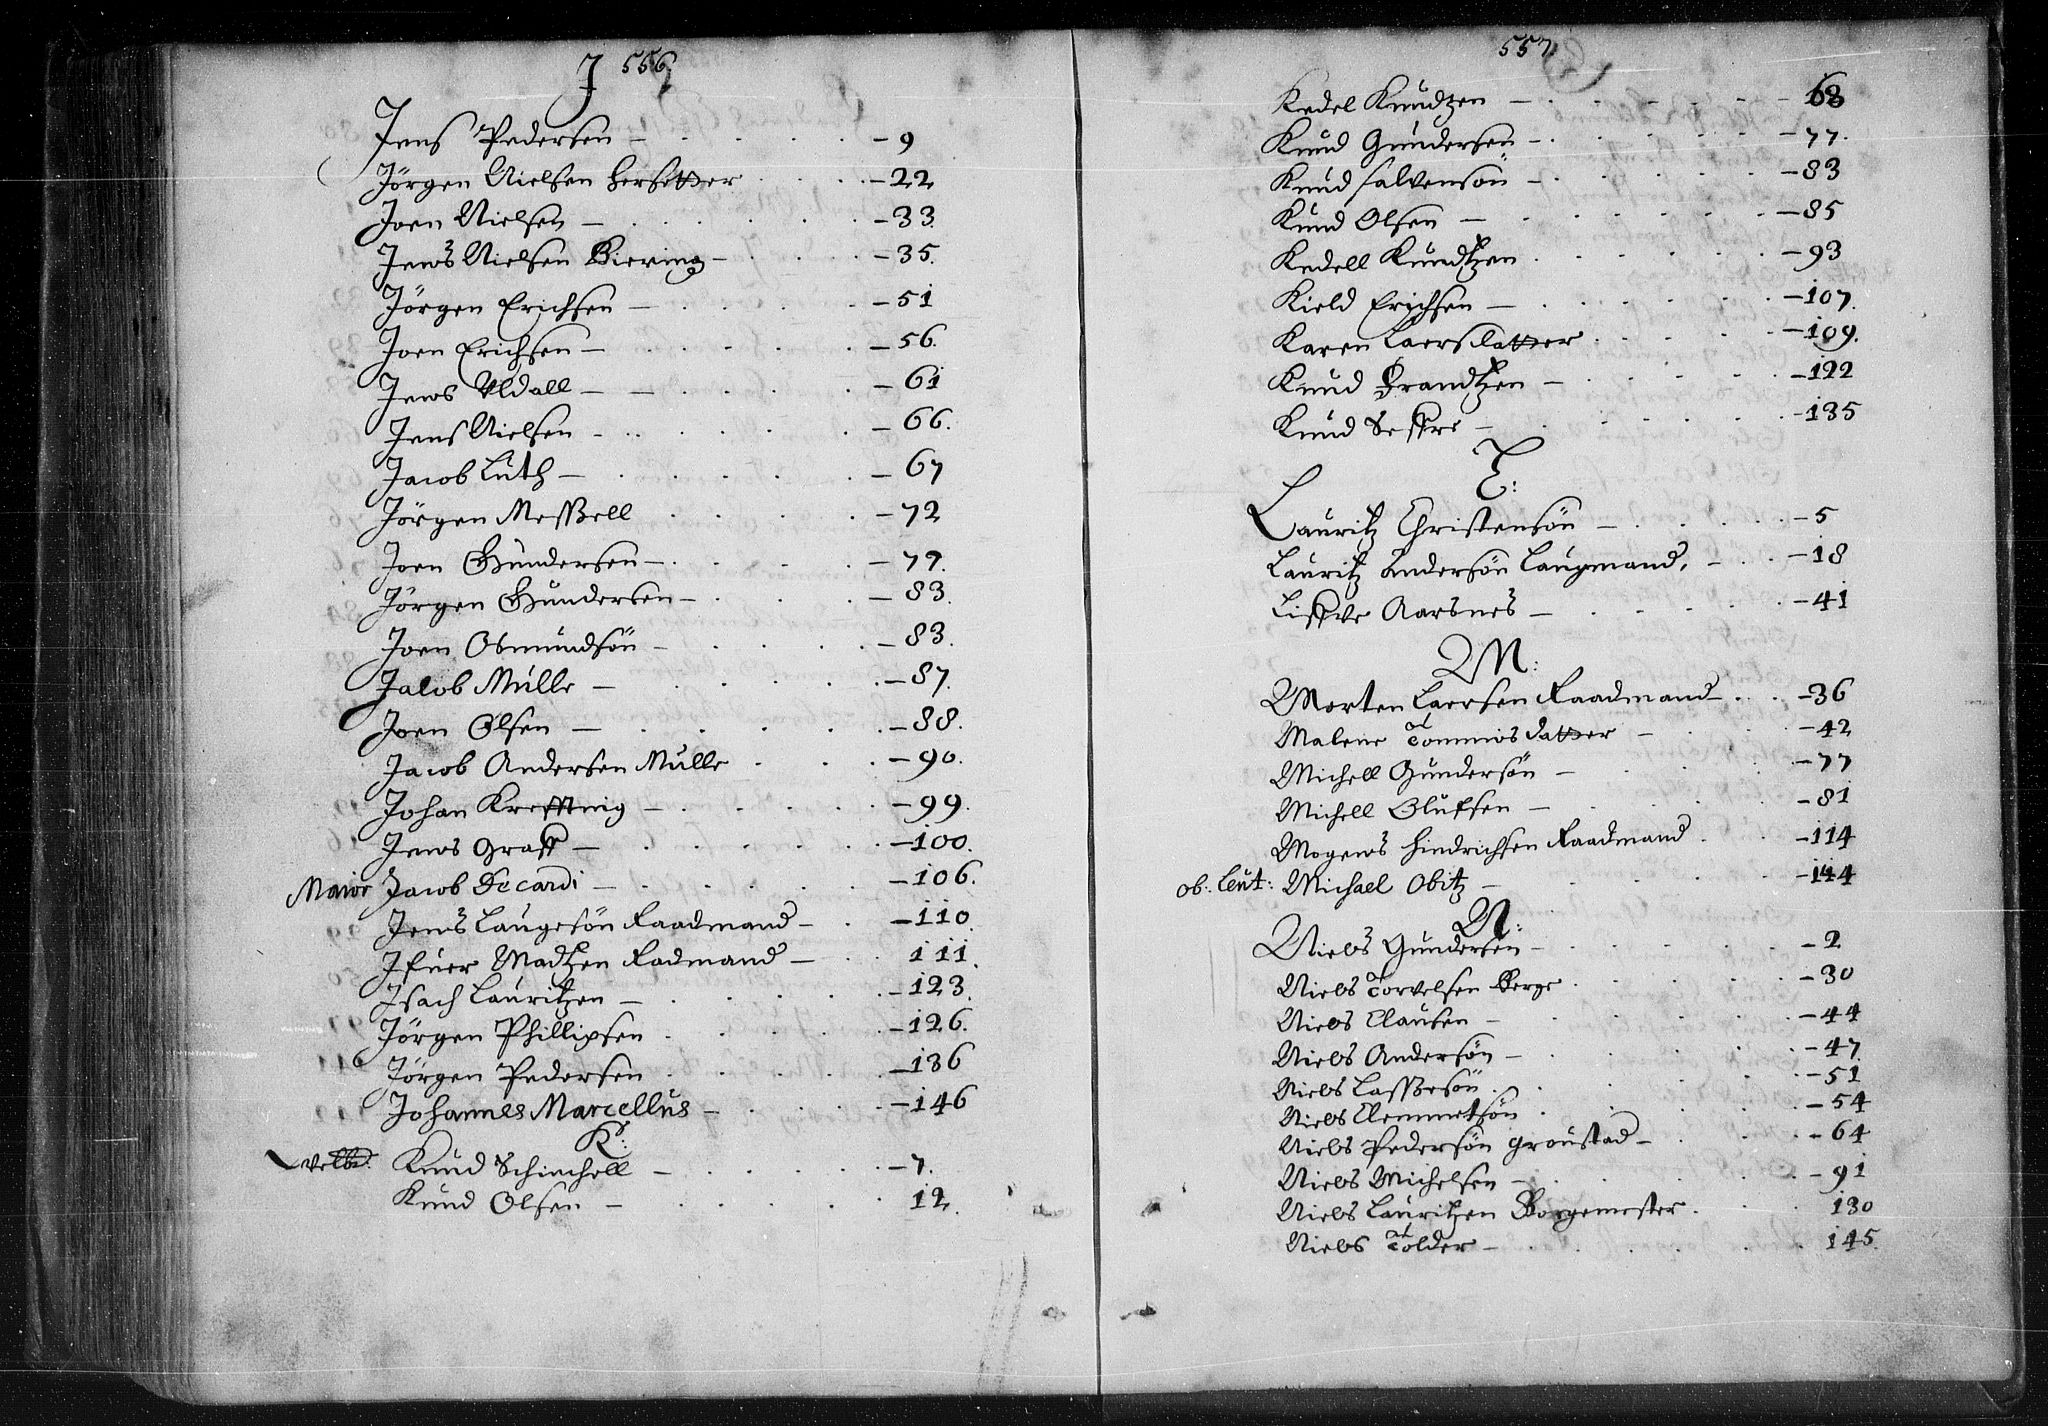 J 556.
Jens Pedersen — 9
Jörgen Nielsen Hersetter — 22
Joen Nielsen — 33
Jens Nielsen Biering — 35.
Jörgen Erichsen — 51
Joen Erichsen — 56.
Jens Uldall — 61
Jens Nielsen — 66.
Jacob Luth — 67
Jörgen Messzell — 72
Joen Gundersen — 77.
Jörgen Gundersen — 83.
Joen Osmundsön — 83.
Jacob Mülle — 87.
Joen Olsen — 88.
Jacob Andersen Mülle — 90.
Johan Kreffting — 99.
Jens Graff — 100.
Maior Jacob Decardi — 106.
Jens Laugesön Raadmand — 110
Ifuer Madtzen Radmand — 111.
Isach Lauritzen — 123.
Jörgen Phillipsen — 126.
Jörgen Pedersen — 136
Johannes Marcellus — 146
K:
Velbr. Knud Schinchell — 7.
Knud Olsen — 12.
557.
Kedel Knudtzen — 68
Knud Gundersen — 77.
Knud Salvensön — 83
Knud Olsen — 85
Kedell Knudtzen — 93
Kield Erichsen — 107.
Karen Laersdatter — 109.
Knud Brandtzen — 122
Knud — 135
L:
Lauritz Christensön — 5
Lauritz Andersön Laugmand. — 18
Aarsnes — 41
M:
Morten Laersen Raadmand — 36
Malene Tommisdatter — 42
Michell Gundersön — 77
Michell Olufsen — 81
Mogens Hindrichsen Raadmand — 114
ob: Leut: Michael Obitz — 144
N:
Niels Gundersen — 2
Niels Torvelsen Berge — 30
Niels Clausen — 44
Niels Andersön — 47
Niels Lasszesön — 51
Niels Clemmetsön — 54
Niels Pedersön Groustad — 64
Niels Michelsen — 91
Niels Lauritzen Borgemester 130
Niels Tolder — 145.